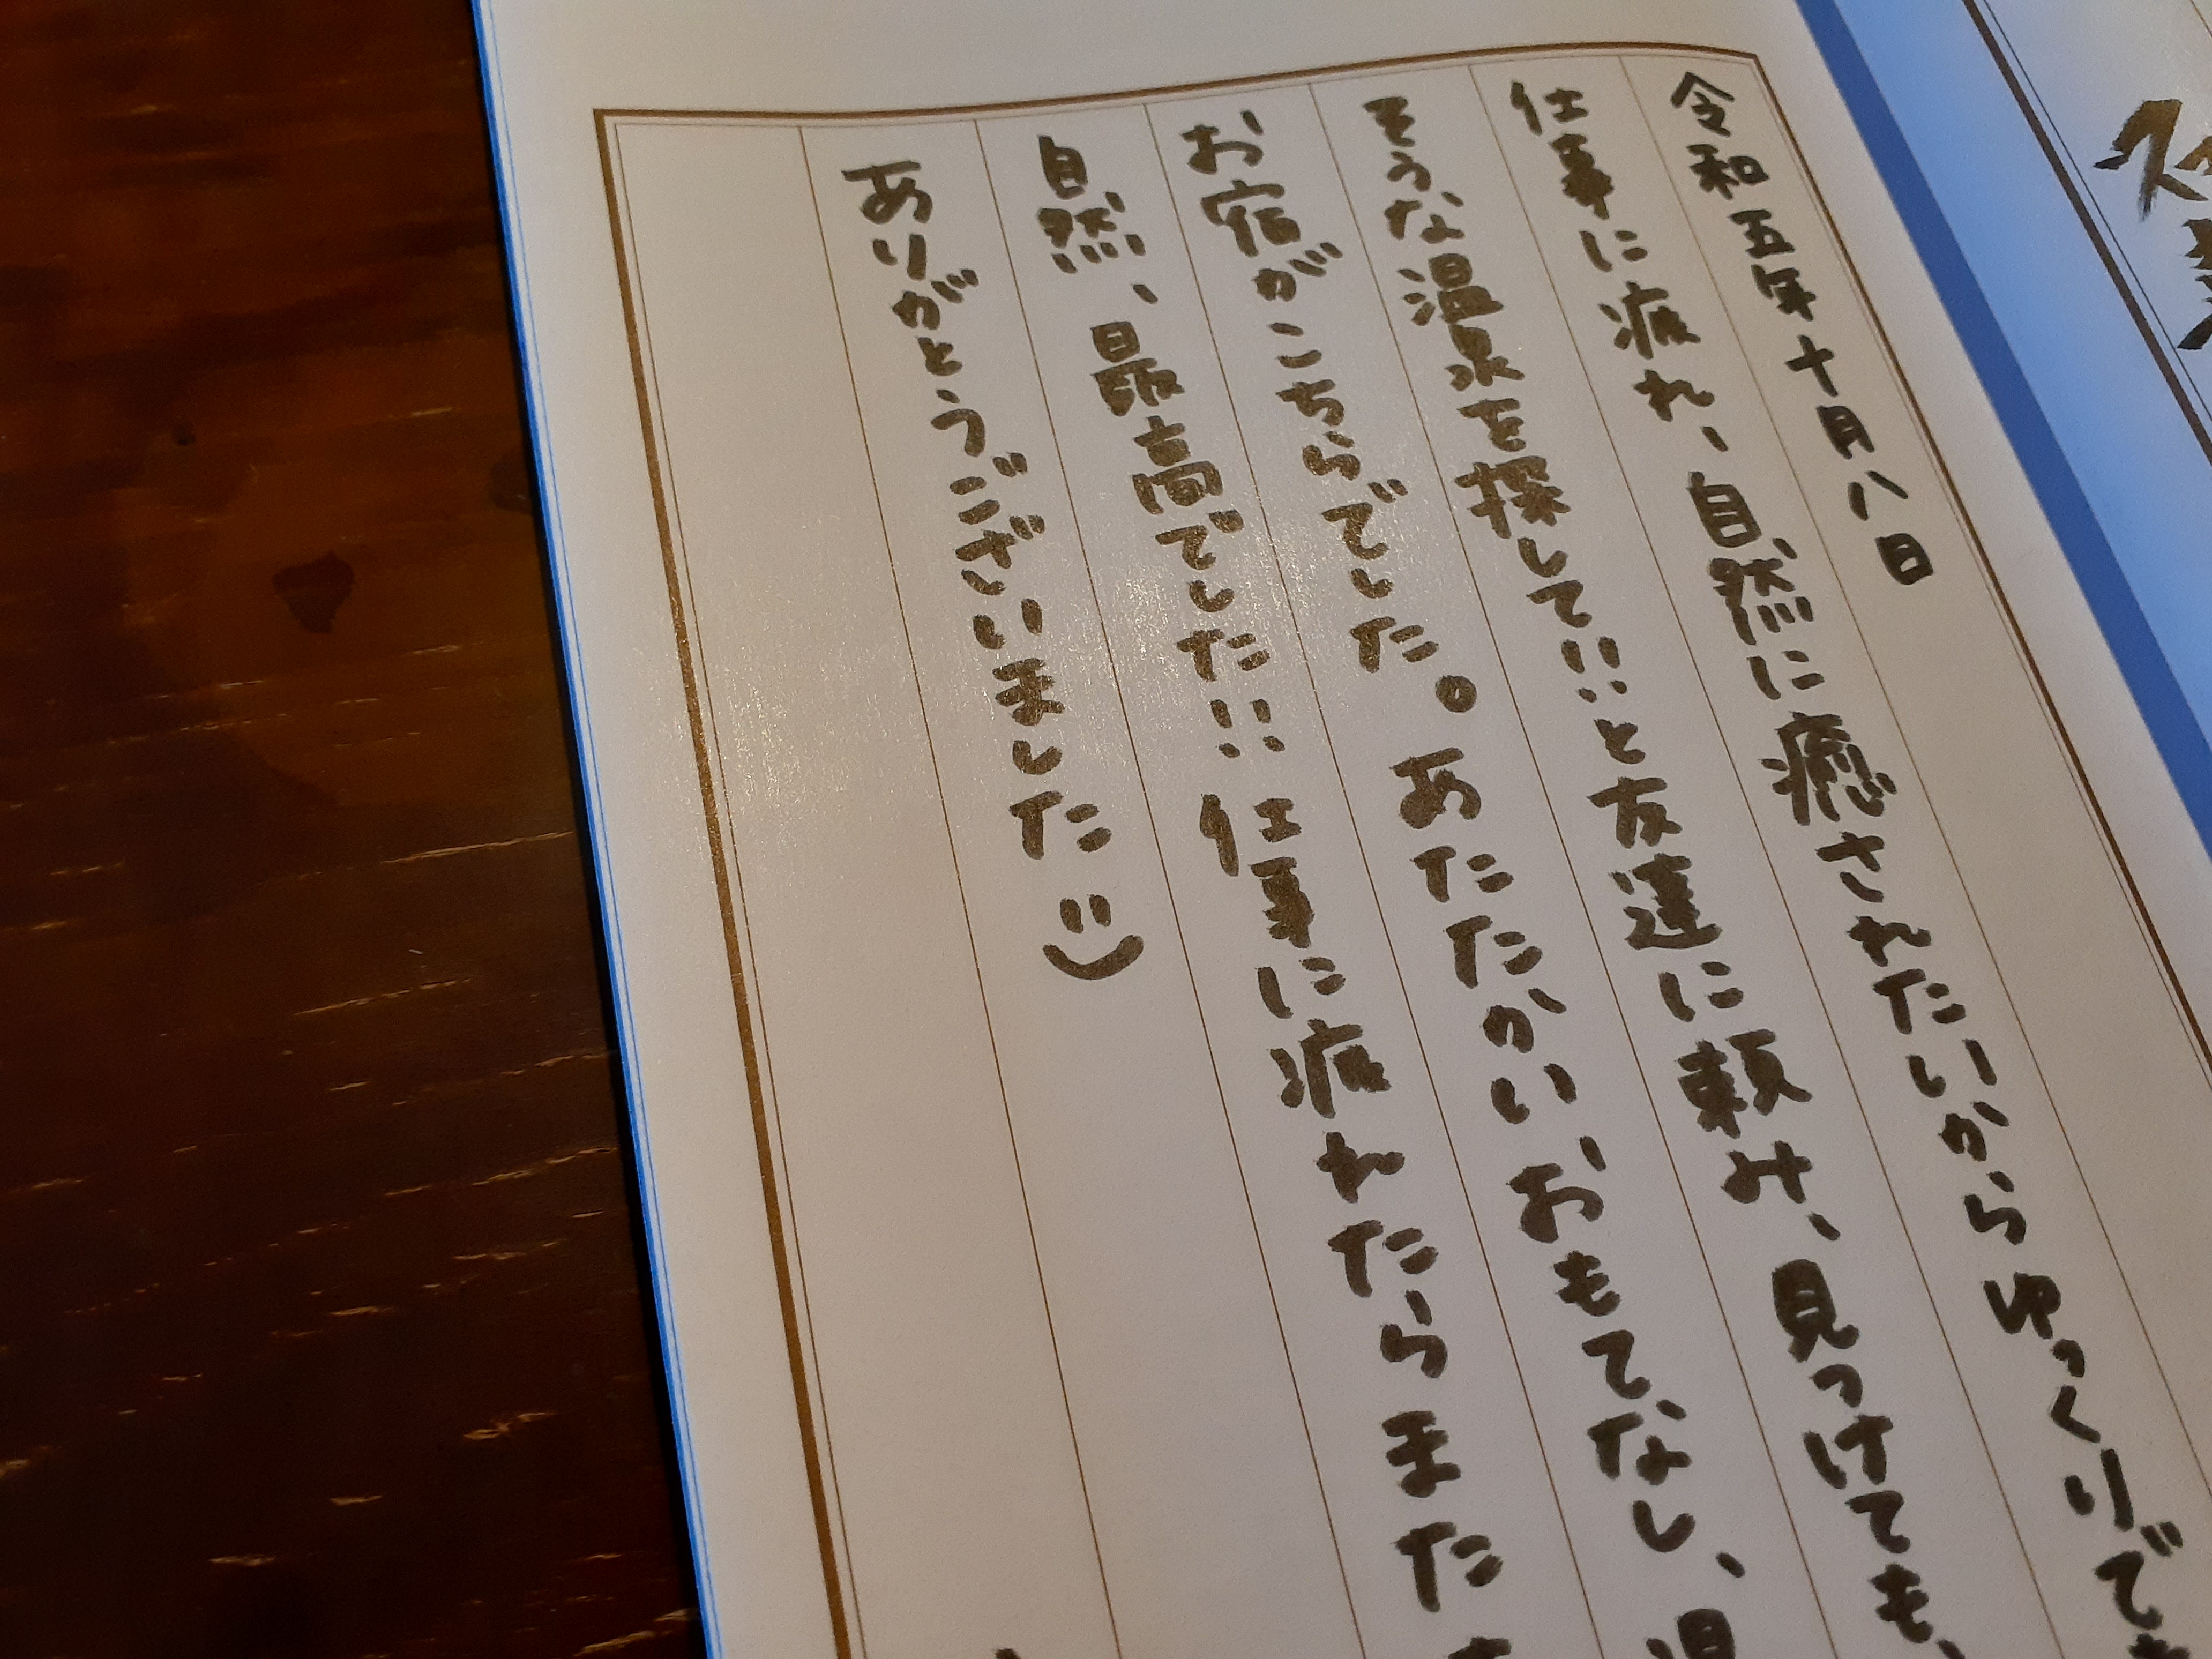 令和五年十月八日
仕事に疲れ、自然に癒されたいからゆっくりでき
そうな温泉を探して!!と友達に頼み、見つけても
お宿がこちらでした。あたたかい、おもてなし、温
自然、最高でした!!仕事に疲れたらまた
ありがとうございました